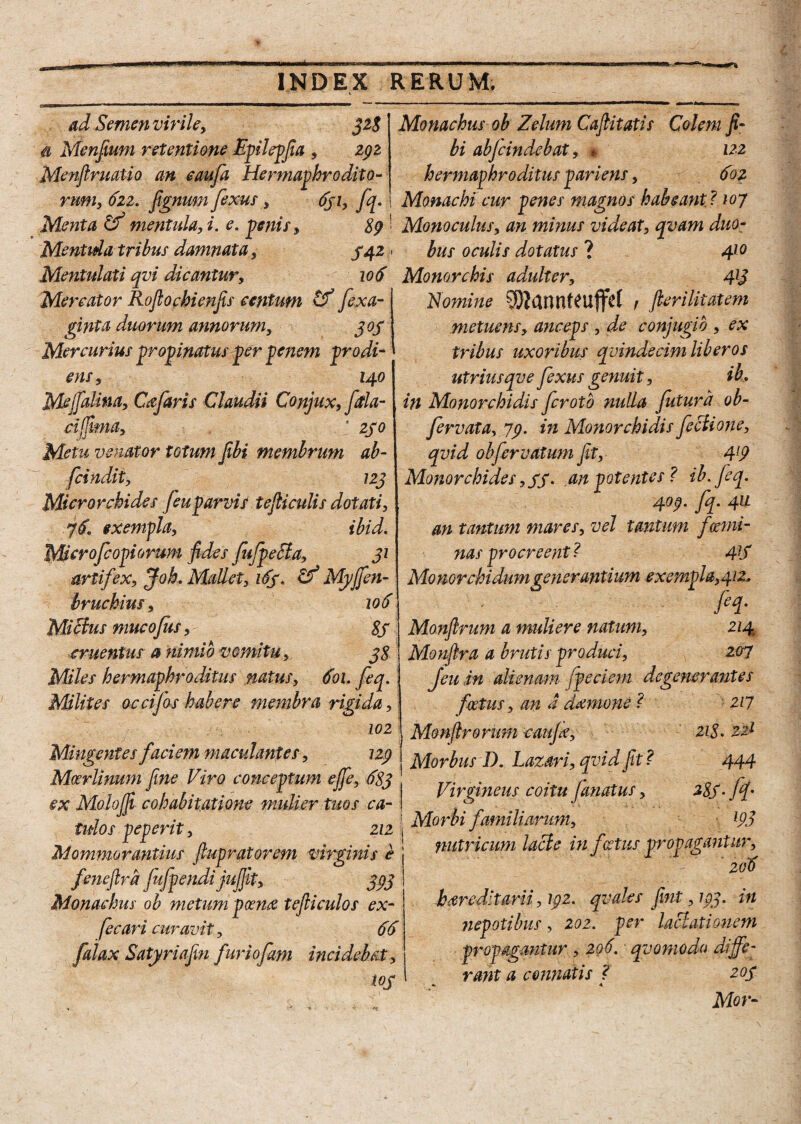 INDEX RERUM.
ad Semen virile, 328
a Mensium retentione Epilepsia , 292
Menstruatio an causa Hermaphrodito-
rum, 622. signum sexus , 651, sq.
Menta & mentula, i. e. penis, 89
Mentula tribus damnata, 542
Mentulati qvi dicantur, 106
Mercator Rostochiensis centum & sexa-
ginta duorum annorum, 305
Mercurius propinatus per penem prodi-
ens, 140
Messalina, Cæsaris Claudii Conjux, sala-
cissima, 250
Metu venator totum sibi membrum ab-
scindit, 123
Microrchides seu parvis testiculis dotati,
76. exempla, ibid.
Microscopiorum fides suspecta, 31
artifex, Joh. Mallet, 165. & Myssen-
bruchius, 106
Mictus mucosus, 85
cruentus a nimio vomitu, 38
Miles hermaphroditus natus, 601. seq.
Milites occisos habere membra rigida,
102
Mingentes faciem maculantes, 129
Mœrlinum sine Viro conceptum esse, 683
ex Molossi cohabitatione mulier tuos ca-
tulos peperit, 212
Mommorantius stupratorem virginis è
fenestrâ suspendi jussit, 393
Monachus ob metum pœnæ testiculos ex-
secari curavit, 66
salax Satyriasin furiosam incidebat,
105
Monachus ob Zelum Castitatis Colem si-
bi abscindebat, 122
hermaphroditus pariens, 602
Monachi cur penes magnos habeant? 107
Monoculus, an minus videat, qvam duo-
bus oculis dotatus ? 410
Monorchis adulter, 413
Nomine Mannteuffel , sterilitatem
metuens, anceps , de conjugio , ex
tribus uxoribus qvindecim liberos
utriusqve sexus genuit, ib.
in Monorchidis scroto nulla futurâ ob-
servata, 79. in Monorchidis sectione,
qvid observatum sit, 419
Monorchides, 55. an potentes ? ib. seq.
409. sq. 411
an tantum mares, vel tantum fœmi-
nas procreent? 415
Monorchidum generantium exempla, 412.
seq.
Monstrum a muliere natum, 214
Monstra a brutis produci, 207
seu in alienam speciem degenerantes
fœtus, an â dæmone ? 217
Monstrorum causæ, 218. 221
Morbus D. Lazari, qvid sit ? 444
Virgineus coitu sanatus, 285. sq.
Morbi familiarum, 193
nutricum lacte in fœtus propagantur,
206
hæreditarii, 192. qvales sint , 193. in
nepotibus, 202. per lactationem
propagantur , 206. qvomodo diffe-
rant a connatis ? 205
Mor-